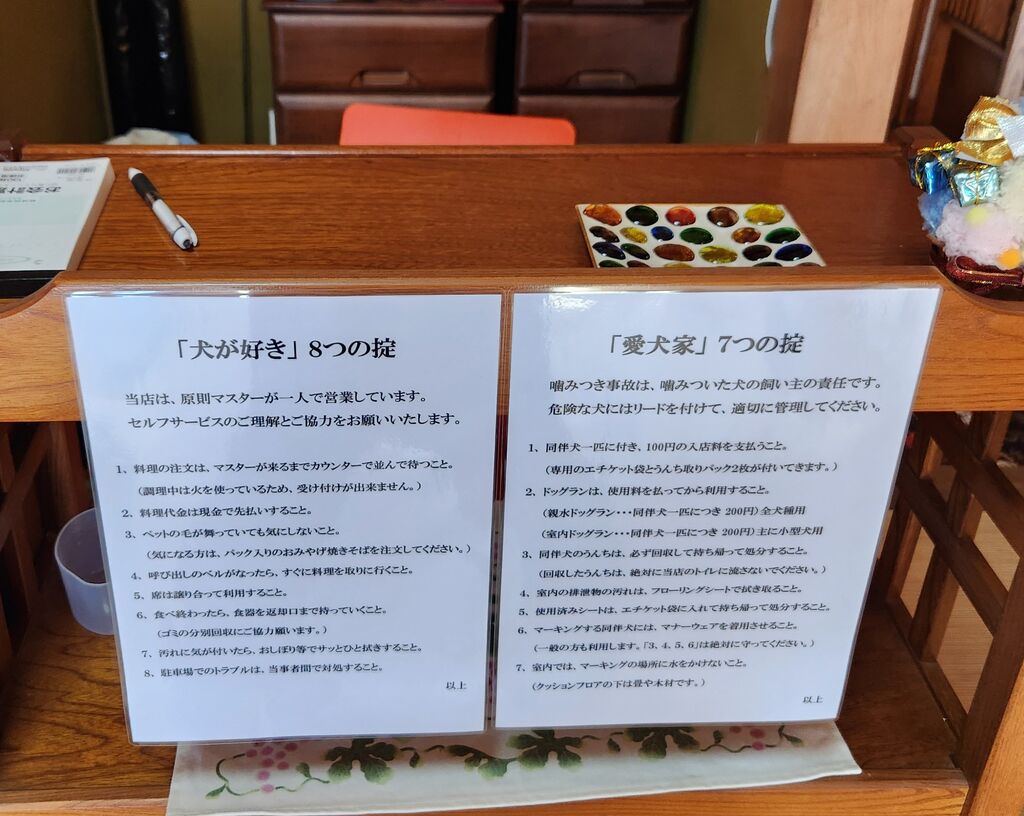 お会計票
「犬が好き」8つの掟
当店は、原則マスターが一人で営業しています。
セルフサービスのご理解とご協力をお願いいたします。
1、料理の注文は、マスターが来るまでカウンターで並んで待つこと。
（調理中は火を使っているため、受け付けが出来ません。）
2、料理代金は現金で先払いすること。
3、ペットの毛が舞っていても気にしないこと。
（気になる方は、パック入りのおみやげ焼きそばを注文してください。）
4、呼び出しのベルがなったら、すぐに料理を取りに行くこと。
5、席は譲り合って利用すること。
6、食べ終わったら、食器を返却口まで持っていくこと。
（ゴミの分別回収にご協力願います。）
7、汚れに気が付いたら、おしぼり等でサッとひと拭きすること。
8、駐車場でのトラブルは、当事者間で対処すること。
以上
「愛犬家」7つの掟
噛みつき事故は、噛みついた犬の飼い主の責任です。
危険な犬にはリードを付けて、適切に管理してください。
1、同伴犬一匹に付き、100円の入店料を支払うこと。
（専用のエチケット袋とうんち取りパック2枚が付いてきます。）
2、ドッグランは、使用料を払ってから利用すること。
（親水ドッグラン・・・同伴犬一匹につき 200円）全犬種用
（室内ドッグラン・・・同伴犬一匹につき 200円）主に小型犬用
3、同伴犬のうんちは、必ず回収して持ち帰って処分すること。
（回収したうんちは、絶対に当店のトイレに流さないでください。）
4、室内の排泄物の汚れは、フローリングシートで拭き取ること。
5、使用済みシートは、エチケット袋に入れて持ち帰って処分すること。
6、マーキングする同伴犬には、マナーウェアを着用させること。
（一般の方も利用します。「3、4、5、6」は絶対に守ってください。）
7、室内では、マーキングの場所に水をかけないこと。
（クッションフロアの下は畳や木材です。）
以上